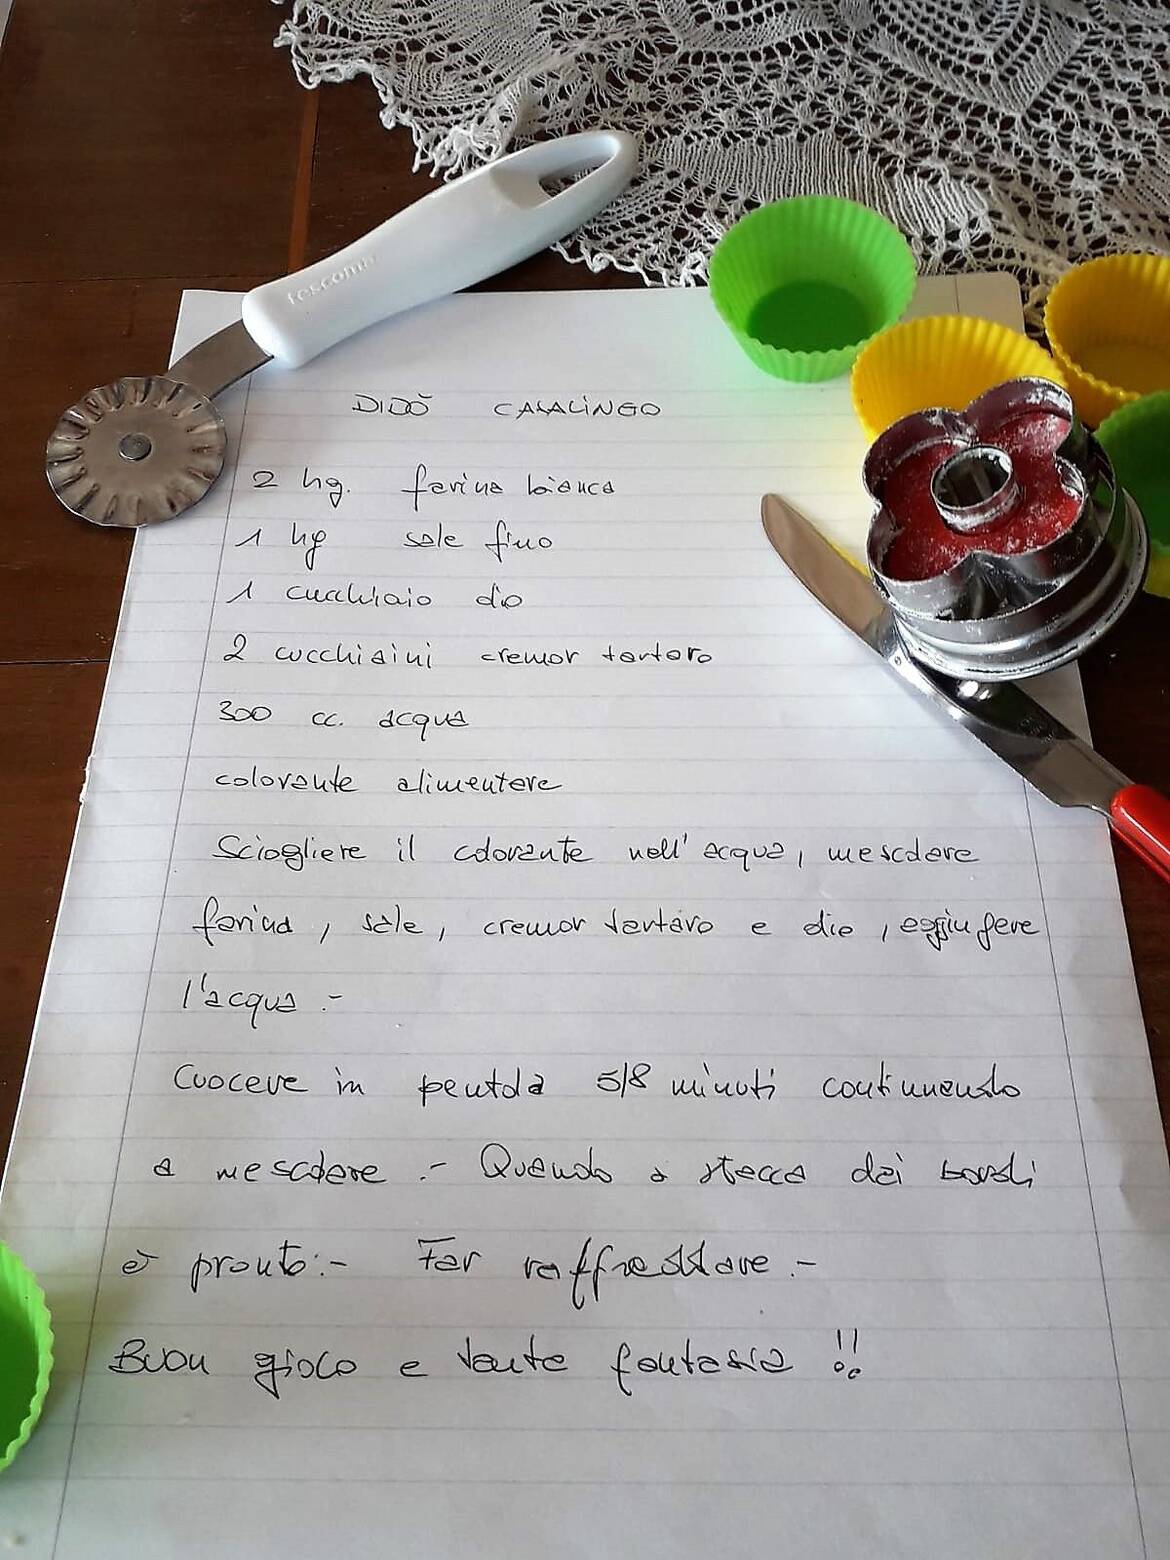 tescoma
DIDÒ CASALINGO
2 hg. farina bianca
1 hg sale fino
1 cucchiaio olio
2 cucchiaini cremor tartaro
300 cc. acqua
colorante alimentare
Sciogliere il colorante nell'acqua, mescolare
farina, sale, cremor tartaro e olio, aggiungere
l'acqua.-
Cuocere in pentola 5/8 minuti continuando
a mescolare.- Quando si stacca dai bordi
è pronto:- Far raffreddare.-
Buon gioco e tanta fantasia !!